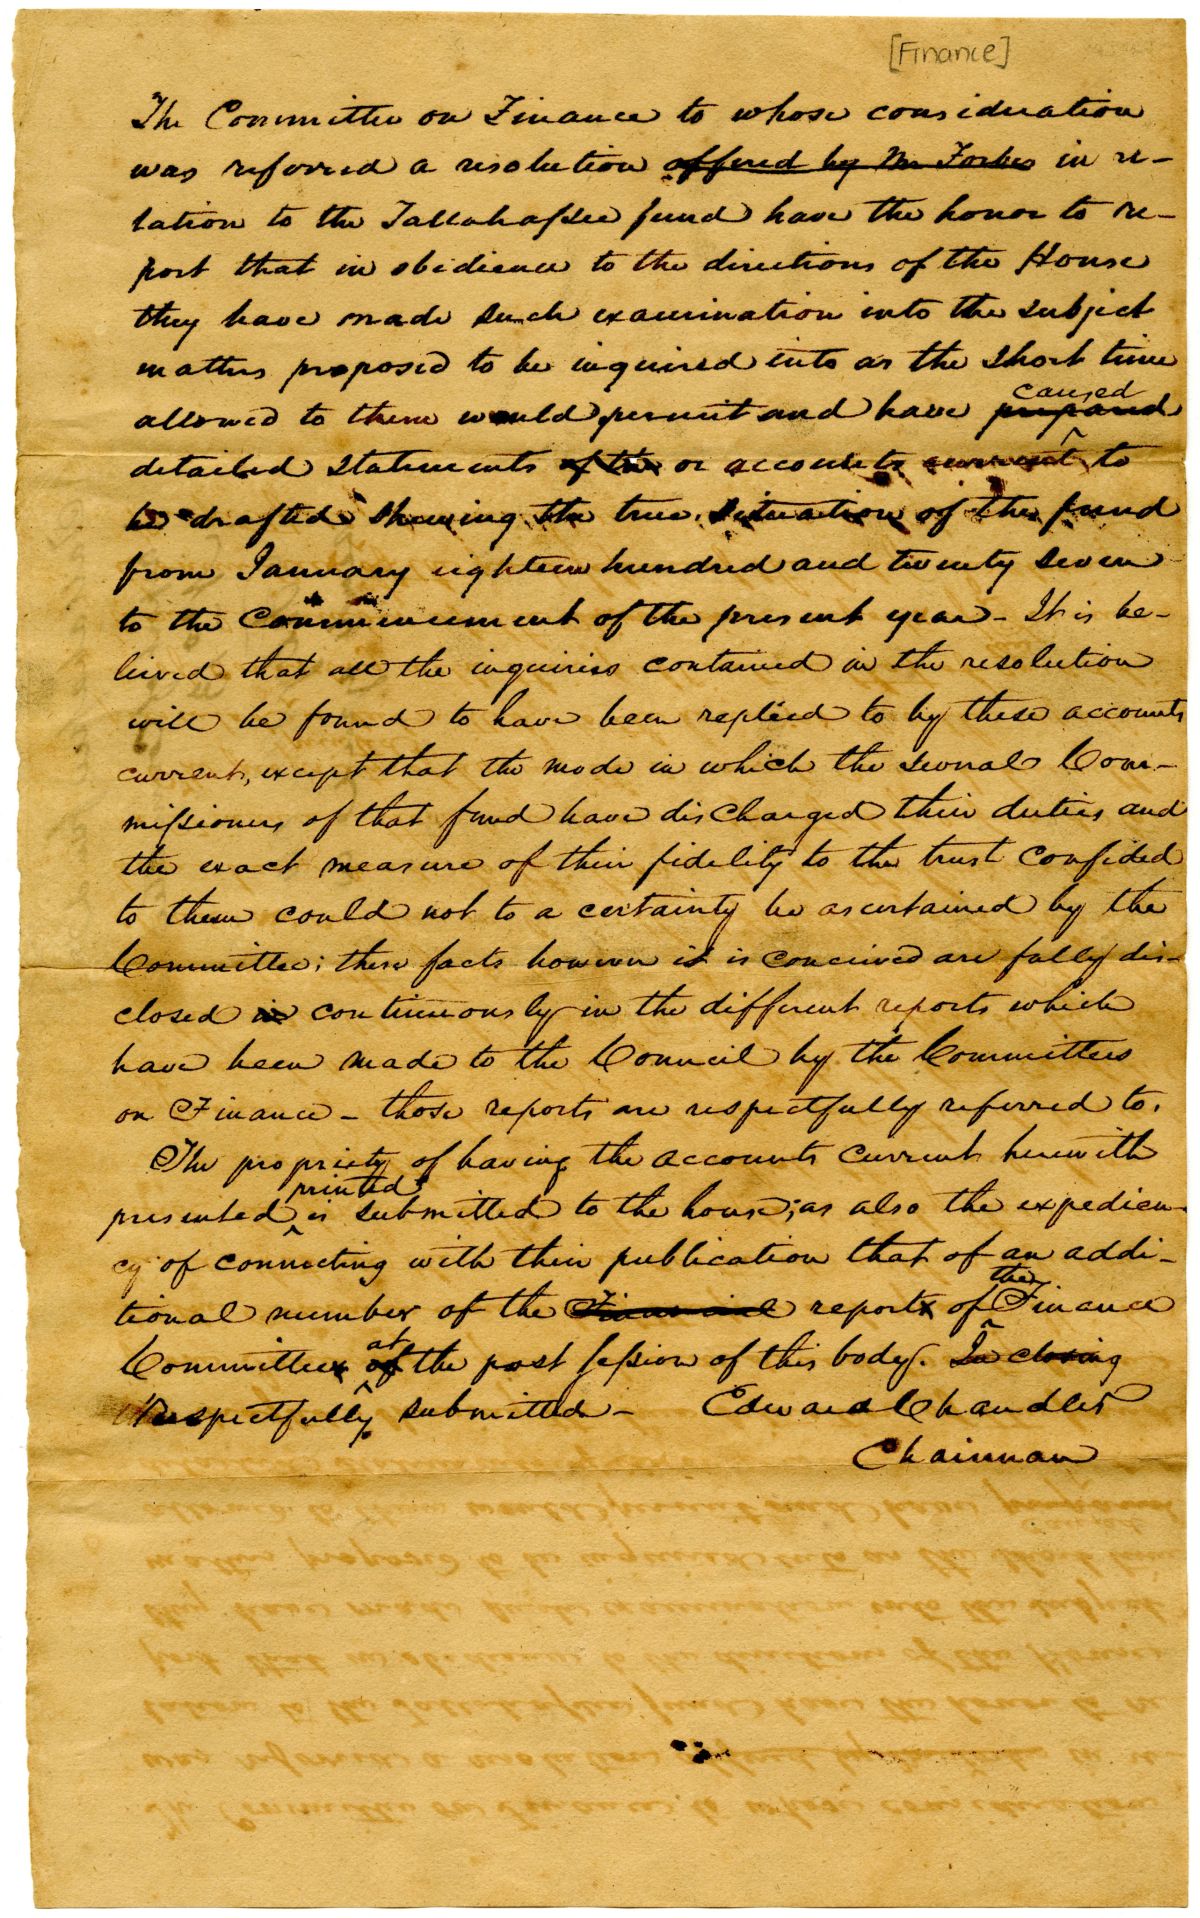 [Finance]
The Committee on Finance to whose consideration
was referred a resolution offered by Mr Forbes in re-
lation to the Tallahassee fund have the honor to re-
port that in obedience to the directions of the House
they have made such examination into the subject
matters proposed to be inquired into as the short time
caused
allowed to them would permit and have prepared
detailed statements of the or accounts current to
be drafted shewing the true situation of the fund
from January eighteen hundred and twenty seven
to the commencement of the present year - It is be-
lieved that all the inquiries contained in the resolution
will be found to have been replied to by these accounts
current, except that the mode in which the several Com-
missioners of that fund have discharged their duties and
the exact measure of their fidelity to the trust confided
to them could not to a certainty be ascertained by the
Committee; these facts however it is conceived are fully dis-
closed in continuously in the different reports which
have been made to the Council by the Committees
on Finance - those reports are respectfully referred to.
The propriety of having the accounts current herewith
printed
presented is submitted to the house; as also the expedien-
cy of connecting with their publication that of an addi-
the
tional number of the Financial reports of Finance
at
Committee of the past session of this body. In closing
Respectfully submitted - Edward Chandler
Chairman